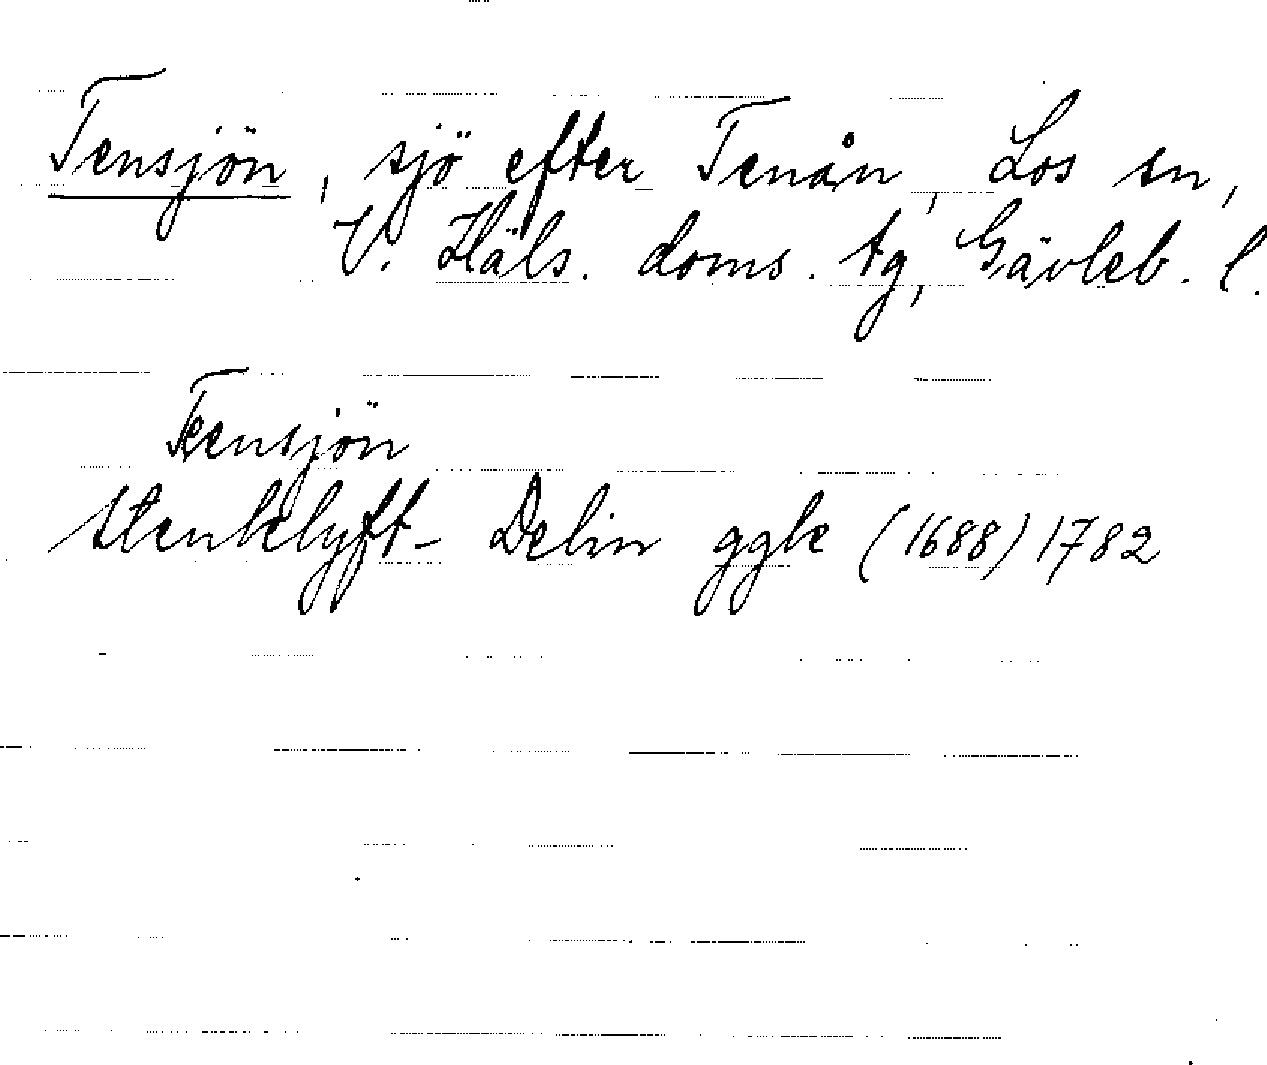 Tensjön, sjö efter Tenån, Los sn,
V. Häls. doms. tg, Gävleb. l.
Teensjön
stenklyft- Delin ggle (1688) 1782